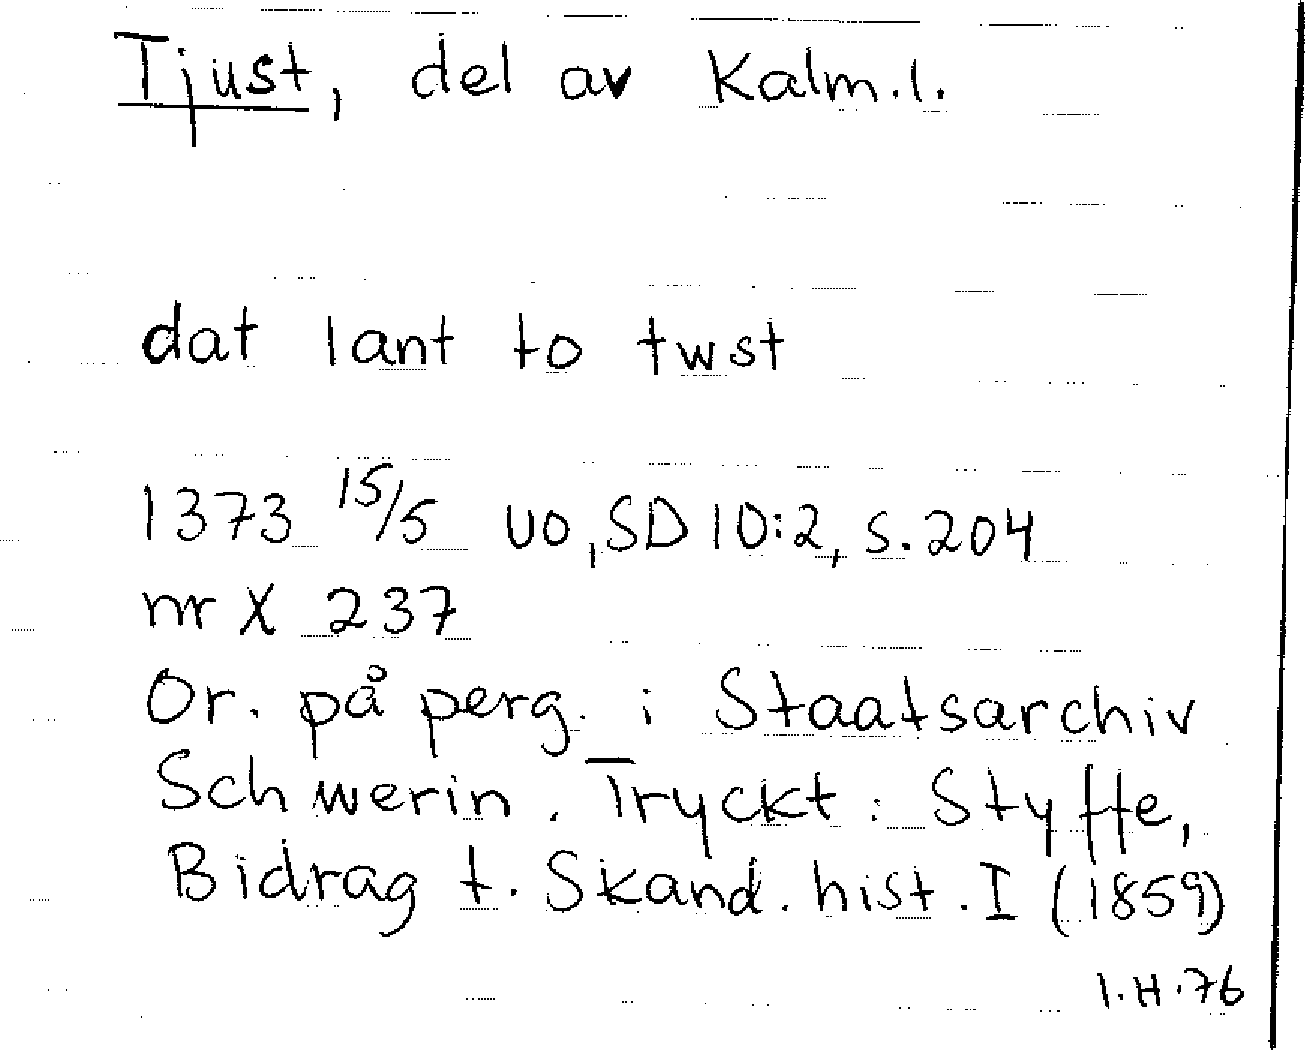 Tjust, del av Kalm.l.
dat lant to twst
1373 15/5 uo, SD 10:2, s. 204
nr X 237
Or. på perg. i Staatsarchiv
Schwerin. Tryckt: Styffe,
Bidrag t. Skand. hist. I (1859)
I.H.76